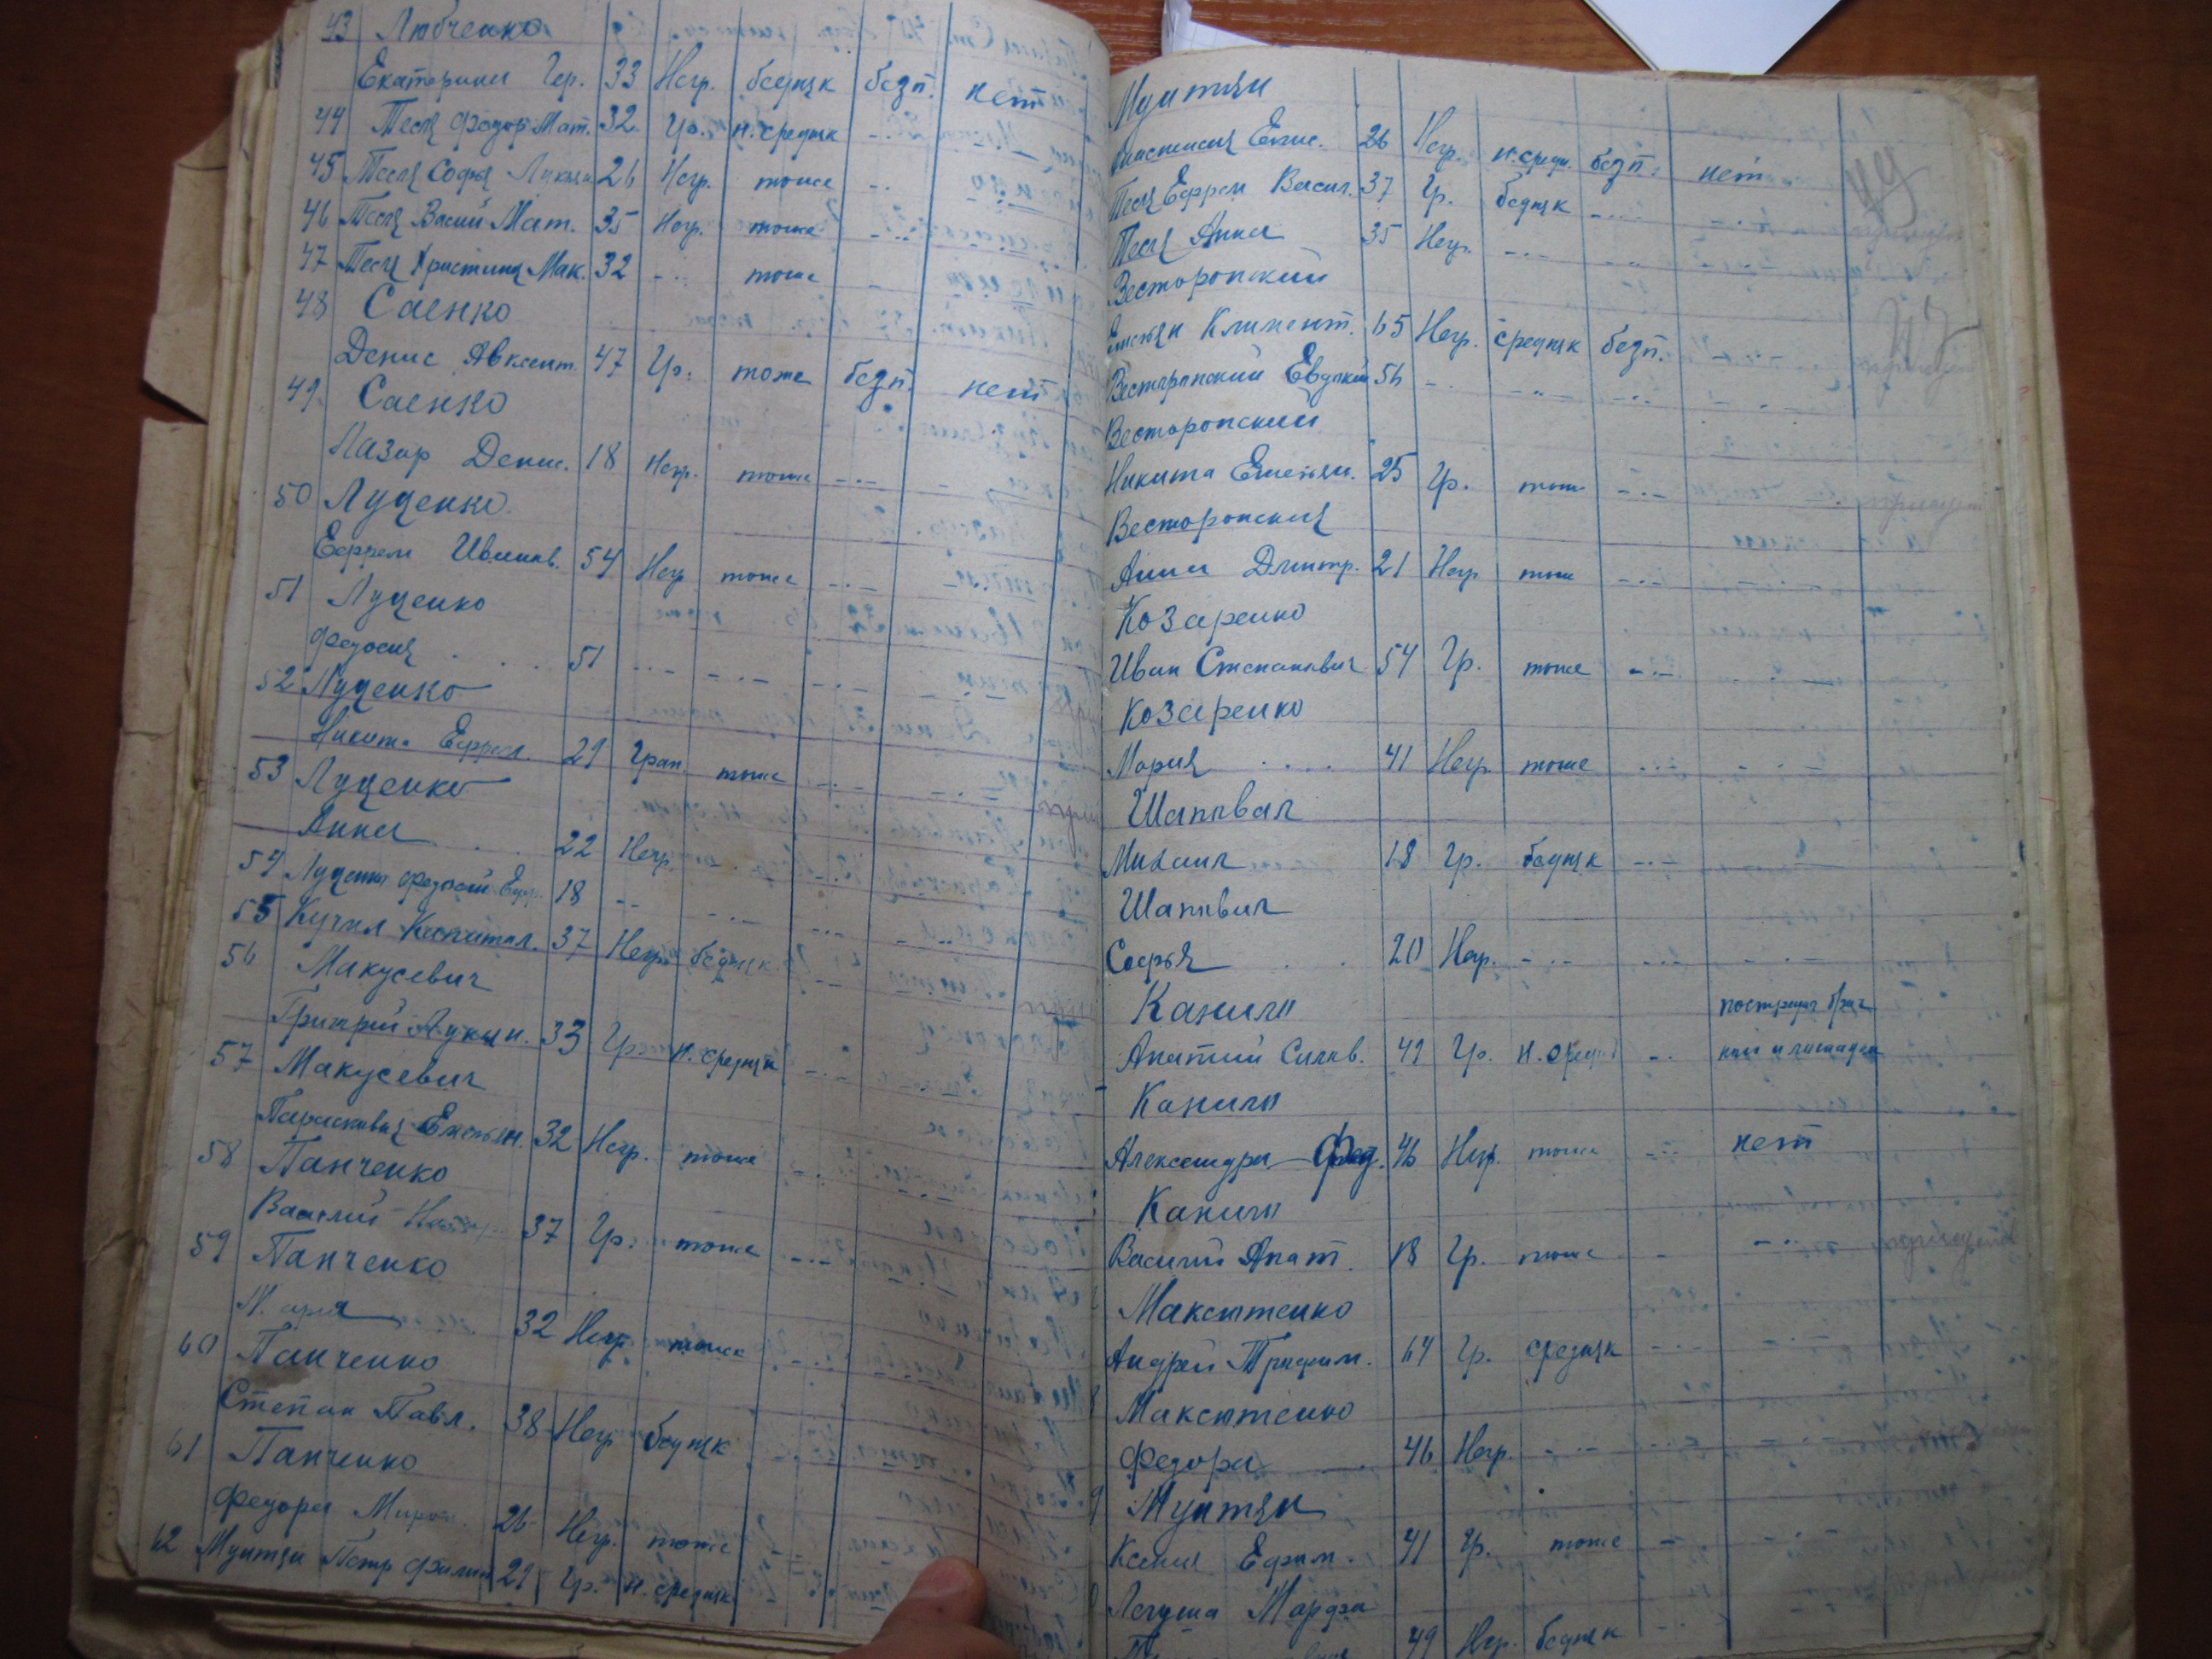 43 Любченко
Екатерина Гр. 33 Негр. бедняк безп. нет
44 Тесля Федор Мат. 32 Гр. н. средняк -"-
45 Тесля Софья Лукьян. 26 Негр. тоже -"-
46 Тесля Василий Мат. 35 Негр. тоже -"-
47 Тесля Христина Мак. 32 -"- тоже -
48 Саенко
Денис Авксент. 47 Гр. тоже безп. нет
49 Саенко
Назар Денис. 18 Негр. тоже -"-
50 Луценко
Ефрем Иванов. 54 Негр тоже -"-
51 Луценко
Федосия 51 -"- -"- -"-
52 Луценко
Никита Ефрем. 29 Грам. тоже -"-
53 Луценко
Анна 22 Негр. -"-
54 Луценко Федосий Ефр. 18 -"- -"-
55 Кучил 37 Негр. бедняк
56 Макусевич
Григорий Лукян. 33 Гр. н. средняк -"-
57 Макусевич
Парасковия Емельян. 32 Негр. тоже -"-
58 Панченко
Василий 37 Гр. тоже -"-
59 Панченко
Мария 32 Негр. тоже -"-
60 Панченко
Степан Павл. 38 Негр бедняк -"-
61 Панченко
Федора Мирон. 26 Негр. тоже
62 Мунтян Петр Филип 29 Гр. н. средняк
Мунтян
Анастасия 26 Негр. н. средн. безп. нет
Тесля Ефрем Васил. 37 Гр. бедняк -"-
Тесля Анна 35 Негр. -"- -"-
Весторопский
Емельян Климент. 65 Негр. средняк безп.
Весторопский Евдокия 56 -"- -"- -"-
Весторопский
Никита Емельян. 25 Гр. тоже -"-
Весторопския
Анна Дмитр. 21 Негр тоже -"-
Козаренко
Иван Степанович 54 Гр. тоже -"-
Козаренко
Мария 41 Негр. тоже -"-
Шаповал
Михаил 18 Гр. бедняк -"-
Шаповал
Софья 20 Негр. -"- -"- -"-
Канило
Апатий Силов. 49 Гр. н. средня -"-
Канило
Александра Фед. 46 Негр. тоже -"- нет
Канило
Василий Апат. 18 Гр. тоже - -"-
Максютенко
Андрей Трифим. 64 Гр. средняк -"-
Максютенко
Федора 46 Негр. -"-
9 Мунтян
Ксения Ефим. 41 Гр. тоже -"-
Легуша Марфа
49 Негр. бедняк -"-